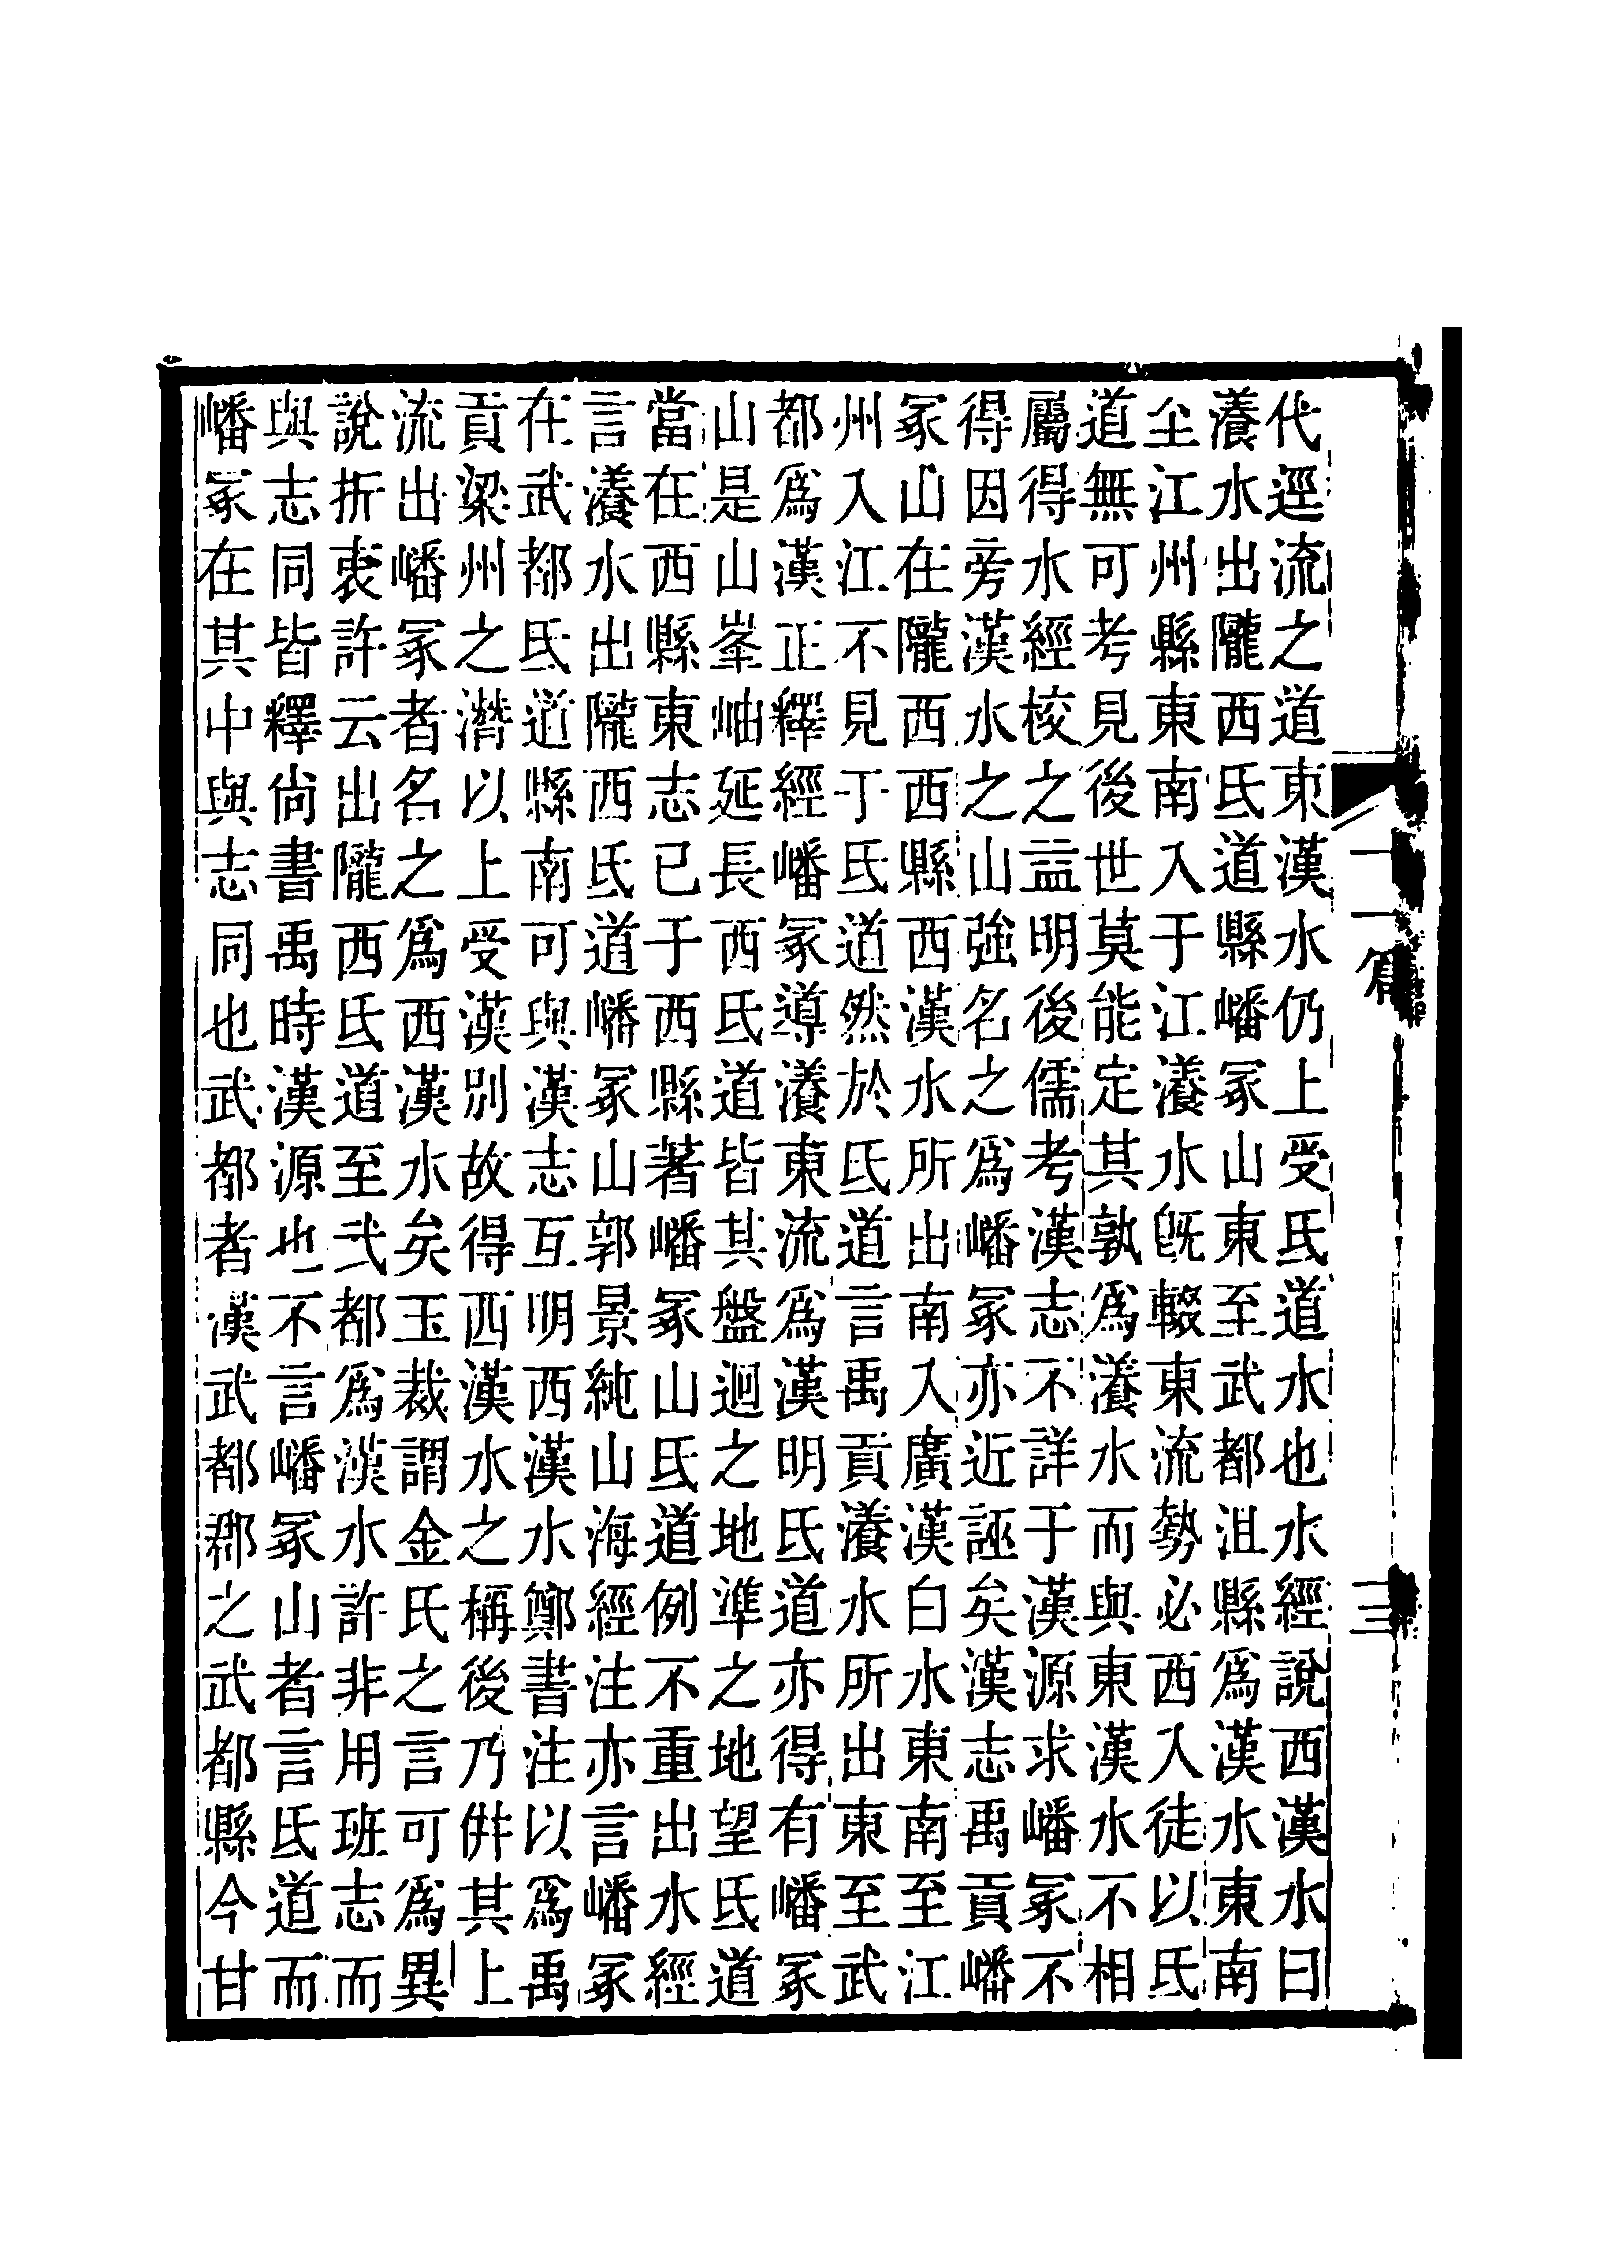 代逕流之道東漢水仍上受氐道水也水經說西漢水曰
瀁水出隴西氐道縣嶓冢山東至武都沮縣爲漢水東南
至江州縣東南入于江瀁水旣輟東流勢必西入徒以氐
道無可考見後世莫能定其孰爲瀁水而與東漢水不相
屬得水經校之益明後儒考漢志不詳于漢源求嶓冢不
得因旁漢水之山強名之爲嶓冢亦近誣矣漢志禹貢嶓
冢山在隴西西縣西漢水所出南入廣漢白水東南至江
州入江不見于氐道然於氐道言禹貢瀁水所出東至武
都爲漢正釋經嶓冢導瀁東流爲漢明氐道亦得有嶓冢
山是山峯岫延長西氐道皆其盤迴之地準之地望氐道
當在西縣東志已于西縣著嶓冢山氐道例不重出水經
言瀁水出隴西氐道嶓冢山郭景純山海經注亦言嶓冢
在武都氐道縣南可與漢志互明西漢水鄭書注以爲禹
貢梁州之潛以上受漢別故得西漢水之稱後乃倂其上
流出嶓冢者名之爲西漢水矣玉裁謂金氏之言可爲異
說折衷許云出隴西氐道至武都爲漢水許非用班志而
與志同皆釋尙書禹時漢源也不言嶓冢山者言氐道而
嶓冢在其中與志同也武都者漢武都郡之武都縣今甘
十一篇
三